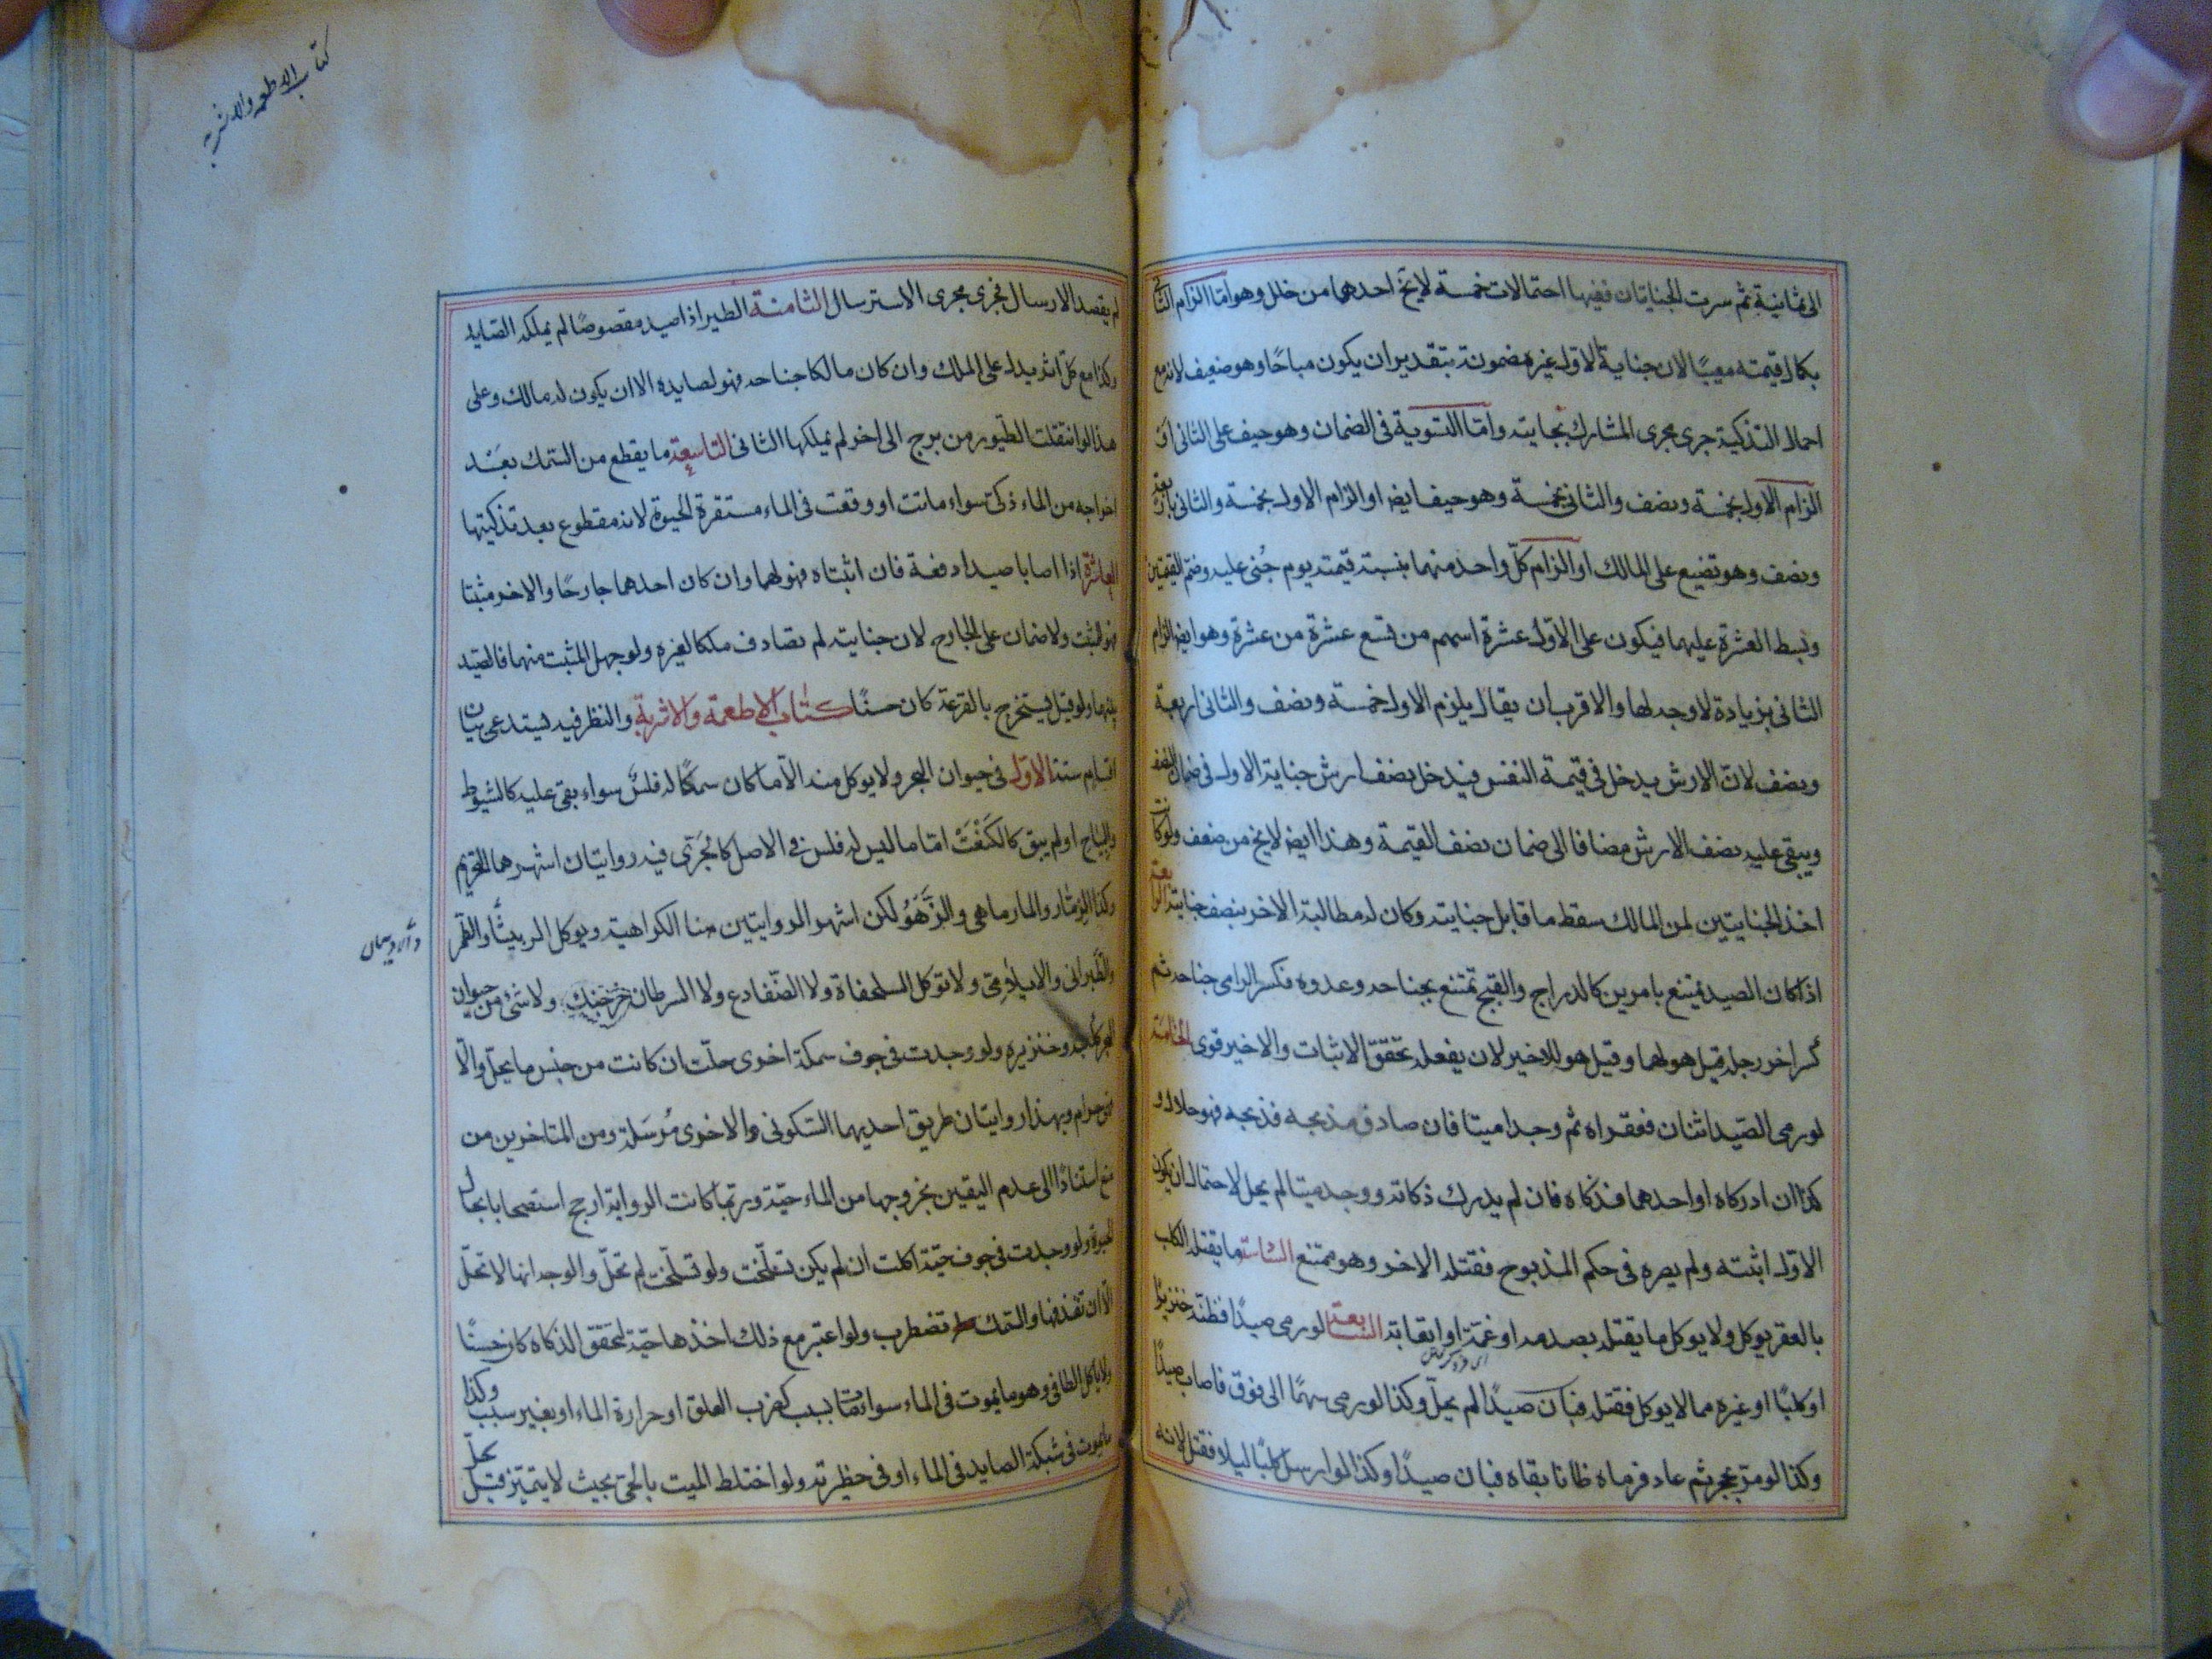 الى ثمانية ثم سرت الجنايتان ففيها احتمالات خمسة لا يخ احدهما من خلل وهو اما الزام الثانى
بكمال قيمته معيبًا لان جناية الاول غير مضمونة بتقدير ان يكون مباحًا وهو ضعيف لانه مع
اهمال التذكية جرى مجرى المشارك بجنايته واما التسوية فى الضمان وهو حيف على الثانى او
الزام الاول بخمسة ونصف والثانى بخمسة وهو حيف ايضا او الزام الاول بخمسة والثانى باربعة
ونصف وهو تضيع على المالك او الزام كلّ واحد منهما بنسبة قيمته يوم جُنى عليه وضم القيمتين
وبسط العشرة عليهما فيكون على الاول عشرة اسهم من تسع عشرة من عشرة وهو ايضا الزام
الثانى بزيادة لا وجه لها والاقرب ان يقال يلزم الاول خمسة ونصف والثانى اربعة
ونصف لان الارش يدخل فى قيمة النفس فيدخل نصف ارش جناية الاول فى ضمان النصف
ويبقى عليه نصف الارش مضافا الى ضمان نصف القيمة وهذا ايضا لا يخ من ضعف ولو كانت
احد الجنايتين لمن المالك سقط ما قابل جنايته وكان له مطالبة الاخر بنصف جنايته الرابعة
اذا كان الصيد يمتنع بامرين كالدراج والقبج يمتنع بجناحه وعدوه فكسر الرامى جناحه ثم
كسر اخر رجله قيل هو لهما وقيل هو للاخير لان بفعله تحقق الاثبات والاخير قوى الخامسة
لو رمى الصّيد اثنان فعقراه ثم وجدا ميتا فان صادف مذبحه فذبحه فهو حلال و
كذا ان ادركاه او احدهما فذكاه فان لم يدرك ذكاته ووجد ميتا لم يحل لاحتمال ان يكون
الاول اثبته ولم يصره فى حكم المذبوح فقتله الاخر وهو ممتنع السادسة ما يقتله الكلب
بالعقر يوكل ولا يوكل ما يقتله بصدمه او غمّه او اتعابه السابعة لو رمى صيدًا فظنّه خنزيرًا
او كلبًا او غيره مما لا يوكل فقتله فبان صيدًا لم يحلّ وكذا لو رمى سهمًا الى فوق فاصاب صيدًا
وكذا لو مرّ بحجر ثم عاد فرماه ظانا بقاه فبان صيدًا وكذا لو ارسل كلبًا ليلا فقتل لانه
كتاب الاطعمه والاشربه
لم يقصد الارسال فجرى مجرى الاسترسال الثامنة الطير اذا صيد مقصوصًا لم يملكه الصّايد
وكذا مع كلّ اثر يدل على الملك وان كان مالكا جناحه فهو لصايده الا ان يكون له مالك وعلى
هذا لو انتقلت الطّيور من برج الى اخر لم يملكها الثانى التاسعة ما يقطع من السّمك بعد
اخراجه من الماء ذكى سواء ماتت او وقعت فى الماء مستقرة الحيوة لانه مقطوع بعد تذكيتها
العاشرة اذا اصابا صيدا دفعة فان اثبتاه فهو لهما وان كان احدهما جارحًا والاخر مثبتا
فهو للمثبت ولا ضمان على الجارح لان جنايته لم تصادف ملكا لغيره ولو جهل المثبت منهما فالصّيد
بينهما ولو قيل يستخرج بالقرعة كان حسنًا كتاب الاطعمة والاشربة والنظر فيه يستدعى بيان
اقسام ستة الاوّل فى حيوان البحر ولا يوكل منه الا ما كان سمكًا له فلسٌ سواء بقى عليه كالشبوط
والبياح او لم يبق كالكَنْعَتْ امّا ما ليس له فلس فى الاصل كالجرّى فيه روايتان اشهرهما التحريم
وكذا الزمّار والمارماهى والزَّهْوُ لكن اشهر الروايتين هنا الكراهية ويوكل الربيثا والطّمر
والطّبرانى والابلامى ولا توكل السلحفاة ولا الضّفادع ولا السرطان خرچنك ولا شئ من حيوان
البحر كلبه وخنزيره ولو وجدت فى جوف سمكة اخرى حلّت ان كانت من جنس ما يحلّ والّا
فهى حرام وبهذا روايتان طريق احديهما السّكونى والاخرى مُرسَلة ومن المتاخرين من
منع استنادًا الى عدم اليقين بخروجها من الماء حيّة وربّما كانت الرواية ارجح استصحابا بحال
الحيوة ولو وجدت فى جوف حيّة اكلت ان لم يكن تسلّخت ولو تسلّخت لم تحلّ والوجه انها لا تحلّ
الّا ان تقذفها والسّمك تضطرب ولو اعتبر مع ذلك اخذها حيّة لتحقق الذكاة كان حسنًا
ولا ياكل الطافى وهو ما يموت فى الماء سواء مات بسبب كضرب العلق او حرارة الماء او بغير سبب وكذا
ما يموت فى شبكة الصايد فى الماء او فى حظيرته ولو اختلط الميت بالحى بحيث لا يتميّز قيل يحلّ